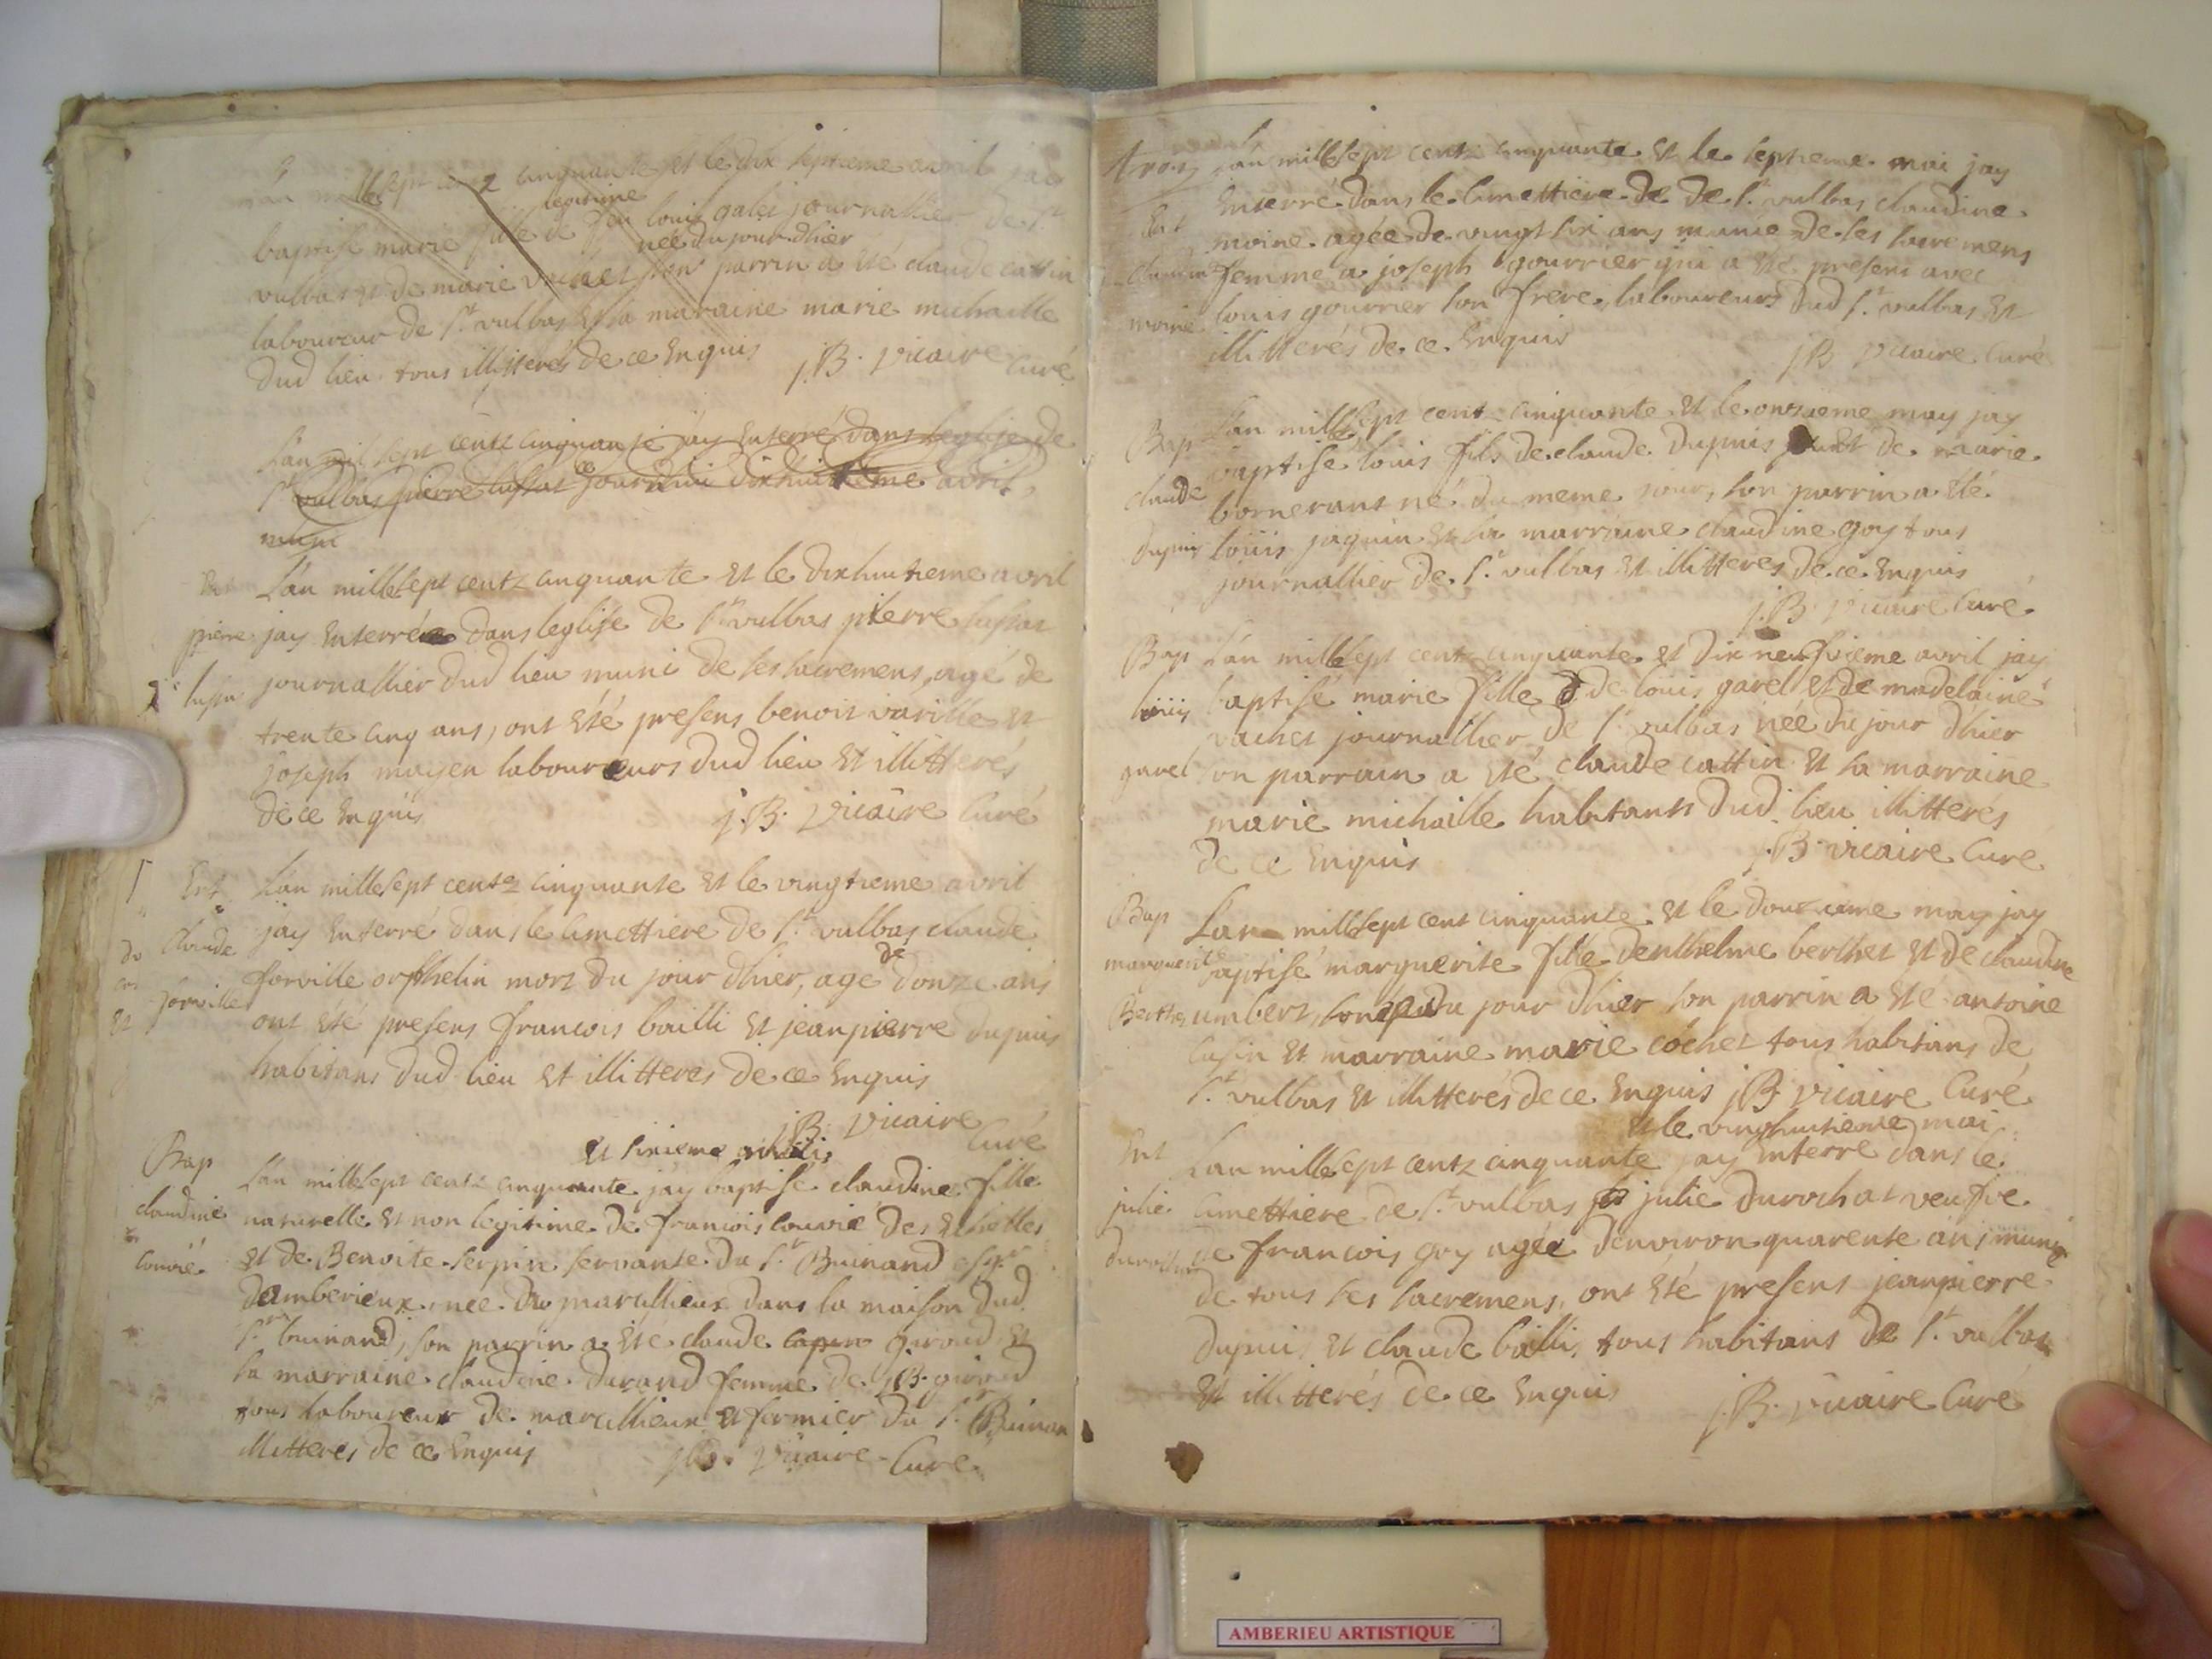 lan mille sept centz cinquante et le dix septieme avril jay
legitime
baptisé marie fille de feu louis galet journallier de St
née du jour dhier
vulbas et de marie vachet son parrin a été claude cattin
laboureur de St vulbas et la maraine marie michaille
dud lieu tous illitterés de ce enquis j.B. vicaire curé
Lan mil sept centz cinquante jay enterré dans leglise de
St vulbas pierre lussat ce jourdhui dixhuitieme avril,
muni
Ent
Lan mille sept centz cinquante et le dixhuitieme avril
pierre
jay enterré dans leglise de St vulbas pierre lussat
journallier dud lieu muni de ses sacremens, agé de
trente cinq ans, ont été presens benoit varille et
joseph mayen laboureurs dud lieu et illitterés
de ce enquis j.B. vicaire Curé
Ent
Lan mille sept centz cinquante et le vingtieme avril
Claude
jay enterré dans le cimettiere de St vulbas claude
forville
forville orphelin mort du jour dhier, age de douze ans
ont été presens francois bailli et jean pierre dupuis
habitans dud lieu et illitteres de ce enquis
jB. vicaire Curé
Bap
et sixieme
claudine
Lan mille sept centz cinquante jay baptisé claudine fille
louvié
naturelle et non legitime de francois louvié des echelles
et de Benoite serpin servante du Sr Buinand
damberieux, née du marcillieux dans la maison dud
Sr buinand, son parrin a été claude giroud et
la marraine claudine durand femme de jB. giroud
tous laboureur de marcillieux et fermier du Sr Buinan
illitteres de ce enquis jB. vicaire Curé
Ent
claudine
moine
lan mille sept centz cinquante et le septieme mai jay
enterré dans le cimettiere de de St vulbas claudine
moine agée de vingt six ans munie de ses sacremens
femme a joseph gourrier qui a été present avec
louis gourrier son frere, laboureurs dud St vulbas et
illitterés de ce enquis jB vicaire Curé
Bap
claude
dupuis
Lan mille sept cent cinquante et le onzieme may jay
baptisé louis fils de claude dupuis et de marie
bornerant né du meme jour, son parrin a été
louis jaquin et la marraine claudine goy tous
journallier de St vulbas et illitteres de ce enquis
j.B. vicaire Curé
Bap
louis
garel
Lan mille sept centz cinquante et dix neufvieme avril jay
baptisé marie fille de louis garel et de madelaine
vachet journallier de St vulbas née du jour dhier
son parrain a été claude cattin et sa marraine
marie michaille habitants dud lieu illitteres
de ce enquis j.B. vicaire Curé
Bap
marguerite
Berthet
Lan mille sept cent cinquante et le douzieme may jay
baptisé marguerite fille denthelme berthet et de claudine
umbert, née du jour dhier son parrin a été antoine
cusin et marraine marie cochet tous habitans de
St vulbas et illitterés de ce enquis jB vicaire Curé
et le vinghuitieme mai
Ent
julie
durochat
Lan mille sept centz cinquante jay enterré dans le
cimettiere de St vulbas julie durochat veufve
de francois goy agée denviron quarente ans munie
de tous ses sacremens, ont été presens jean pierre
dupuis et claude bailli, tous habitans de St vulbas
et illitterés de ce enquis j.B. vicaire Curé
AMBERIEU ARTISTIQUE